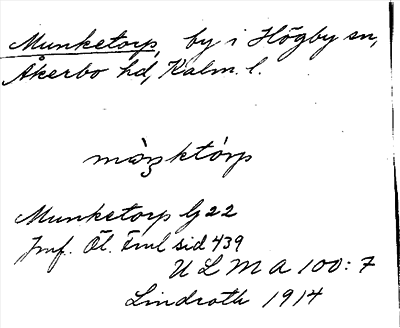 Munketorp, by i Högby sn,
Åkerbo hd, Kalm. l.
màŋktórp
Munketorp G 22
Jmf. Öl. Fml sid 439
ULMA 100:7
Lindroth 1914